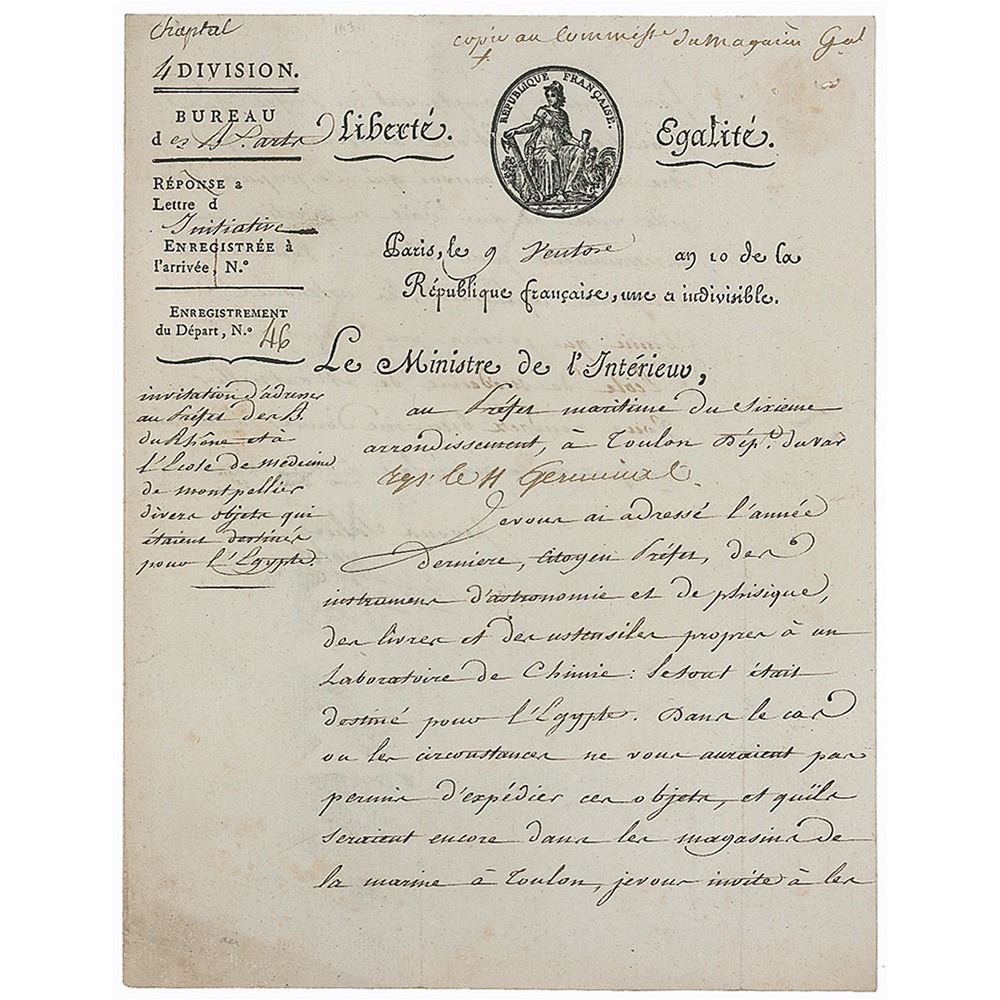 Chaptal
copie au Commiss.re du Magasin Gal
4 DIVISION.
BUREAU
des Bx. arts
Liberté.
RÉPUBLIQUE FRANÇAISE.
Egalité.
RÉPONSE a
Lettre d
Initiative
ENREGISTRÉE à
l'arrivée, N.°
Paris, le 9 Ventose an 10 de la
République française, une et indivisible.
ENREGISTREMENT
du Départ, N.° 46
Le Ministre de l'Intérieur,
invitation d'adresser
au Préfet des B.
du Rhône et à
l'Ecole de médecine
de montpellier
divers objets qui
étaient destinés
pour l'Egypte.
au Préfet maritime du Sixieme
arrondissement, à Toulon Dép.t du var
le 11 Germinal.
Je vous ai adressé l'année
derniere, Citoyen Préfet, des
instrumens d'astronomie et de phisique,
des livres et des ustensiles propres à un
Laboratoire de Chimie : le tout était
destiné pour l'Egypte. Dans le cas
ou les circonstances ne vous auraient pas
permis d'expédier ces objets, et qu'ils
seraient encore dans les magasins de
la marine à Toulon, je vous invite à les